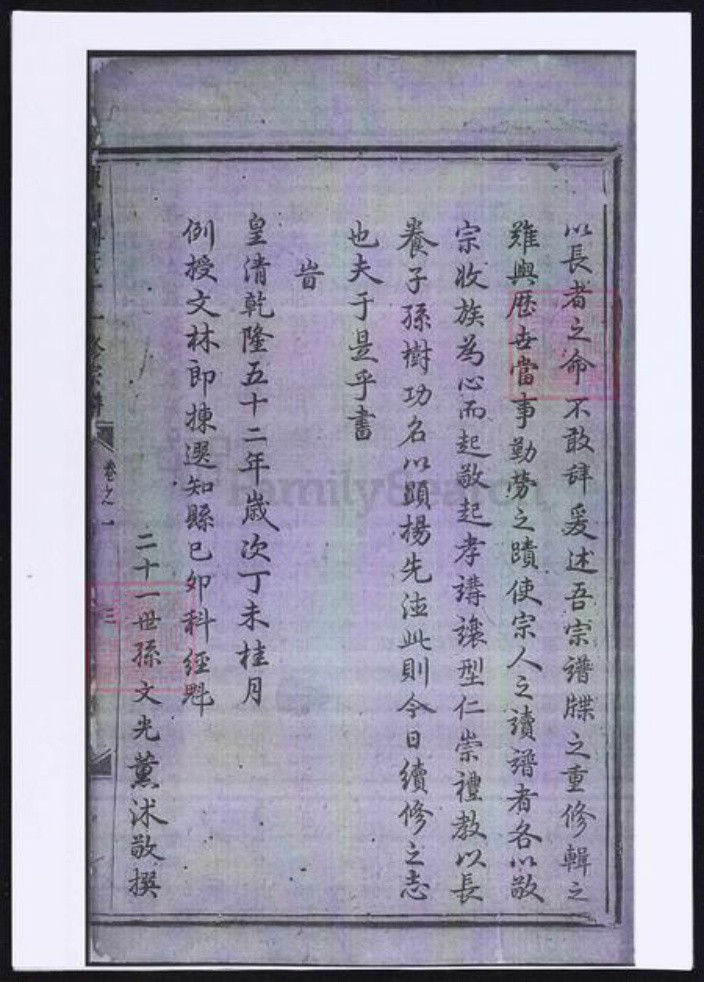 以長者之命不敢辞爰述吾宗譜牒之重修輯之
雖與歷世當事勤劳之蹟使宗人之讀譜者各以敬
宗收族為心而起敬起孝講讓型仁崇禮教以長
養子孫樹功名以顕揚先
此則今日續修之志
也夫于是乎書
旹
皇清乾隆五十二年歲次丁未桂月
例授文林郎揀選知縣己卯科經魁
二十一世孫文光薰沐敬撰
卷之一
三
FamilySearch